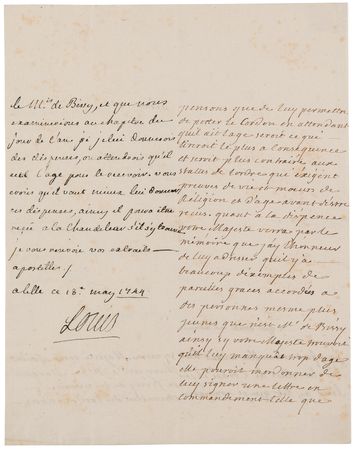 le M.is de Bissy, et que nous
examinerions au chapitre du
jour de l'an si je lui donnerois
des dispenses, ou attendrois qu'il
eut l'age pour le recevoir. vous
voiés qu'il vaut mieux lui donner
ces dispenses, ainsy il poura etre
recû a la Chandeleur s'il a
je vous renvoie vos extraits
apostillés /
a Lille ce 18.e may 1744
Louis
pensons que de luy permettre
de porter le Cordon en attendant
qu'il ait l'age seroit ce qui
tireroit le plus a Consequence
et seroit plus contraire aux
statuts de l'ordre qui exigent
preuves de vie et moeurs de
Religion et d'age avant d'estre
receus. quant a la dispence
votre Majesté verra par le
mémoire que j'ay l'honneur
de luy adresser qu'il y a
beaucoup d'exemples de
pareilles graces accordées a
des personnes mesme plus
jeunes que n'est M.r de Bissy
ainsy sy votre Majesté trouvoit
qu'il luy manquat trop d'age
elle pouroit m'ordonner de
luy signer une lettre en
commandement telle que